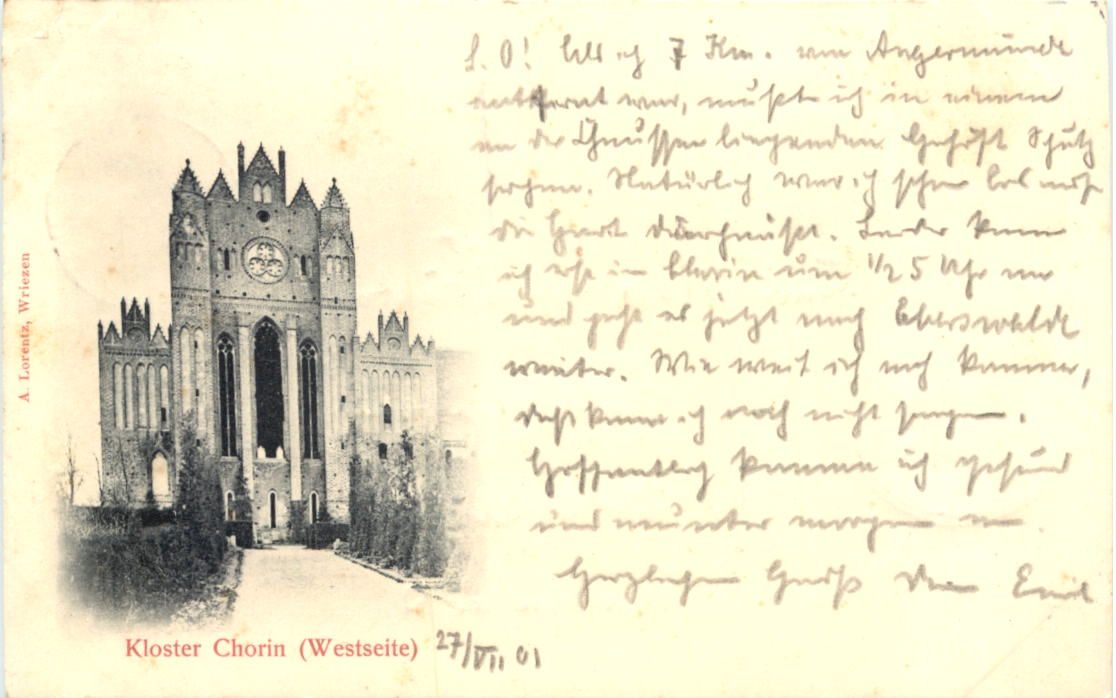 L. O! Als ich 7 Km. von Angermünde
entfernt war, mußte ich in einem
an der Chaussee liegenden Gehöft Schutz
suchen. Natürlich war ich schon bis auf
die Haut durchnäßt. Leider kam
ich erst in Chorin um 1/2 5 Uhr an
und geht es jetzt nach Eberswalde
weiter. Wie weit ich noch komme,
daß kann ich noch nicht sagen.
Hoffentlich komme ich gesund
und munter morgen an.
Herzlichen Gruß Dein Emil
A. Lorentz, Wriezen
Kloster Chorin (Westseite) 27/VII 01